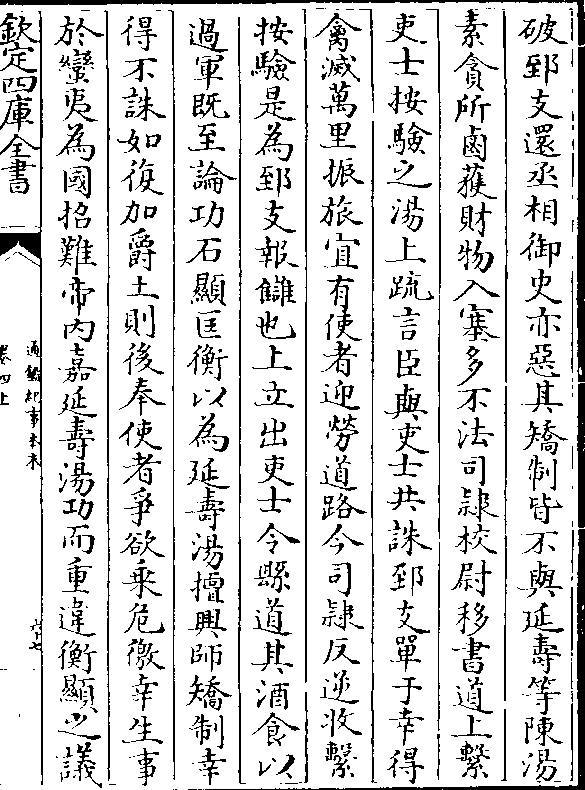 破郅支還丞相御史亦惡其矯制皆不與延壽等陳湯
素貪所鹵獲財物入塞多不法司隸校尉移書道上繫
吏士按驗之湯上疏言臣與吏士共誅郅支單于幸得
禽滅萬里振旅宜有使者迎勞道路今司隸反逆收繫
按驗是為郅支報讎也上立出吏士令縣道具酒食以
過軍既至論功石顯匡衡以為延壽湯擅興師矯制幸
得不誅如復加爵土則後奉使者爭欲乗危徼幸生事
於蠻夷為國招難帝内嘉延壽湯功而重違衡顯之議
欽定四庫全書
通鑑紀事本末
卷四上
六十七